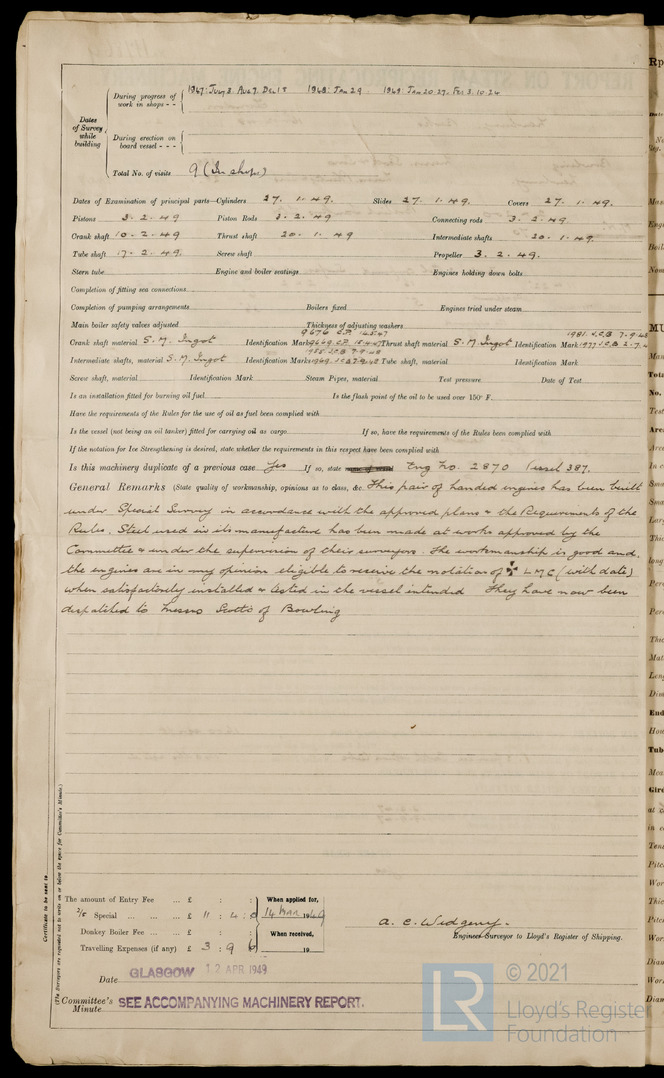 During progress of work in shops - - 1947: July 3. Aug 7. Dec 18 1948: Jan 29. 1949 Jan 20. 27. Feb 3. 10. 24
Dates of Survey while building
During erection on board vessel - - -
Total No. of visits 9 (In shops)
Dates of Examination of principal parts—Cylinders 27. 1. 49. Slides 27. 1. 49. Covers 27. 1. 49.
Pistons 3. 2. 49 Piston Rods 3. 2. 49 Connecting rods 3. 2. 49
Crank shaft 10. 2. 49 Thrust shaft 20. 1. 49 Intermediate shafts 20. 1. 49.
Tube shaft 17. 2. 49. Screw shaft Propeller 3. 2. 49.
Stern tube Engine and boiler seatings Engines holding down bolts
Completion of fitting sea connections
Completion of pumping arrangements Boilers fixed Engines tried under steam
Main boiler safety valves adjusted Thickness of adjusting washers
Crank shaft material S. M. Ingot Identification Mark Thrust shaft material S. M. Ingot Identification Mark
Intermediate shafts, material S. M. Ingot Identification Marks Tube shaft, material Identification Mark
Screw shaft, material Identification Mark Steam Pipes, material Test pressure Date of Test
Is an installation fitted for burning oil fuel Is the flash point of the oil to be used over 150° F.
Have the requirements of the Rules for the use of oil as fuel been complied with
Is the vessel (not being an oil tanker) fitted for carrying oil as cargo If so, have the requirements of the Rules been complied with
If the notation for Ice Strengthening is desired, state whether the requirements in this respect have been complied with
Is this machinery duplicate of a previous case Yes If so, state Eng No. 2870 Vessel 387.
General Remarks (State quality of workmanship, opinions as to class, &c. This pair of handed engines has been built
under Special Survey in accordance with the approved plans & the Requirements of the
Rules. Steel used in its manufacture has been made at works approved by the
Committee & under the supervision of their surveyors. The workmanship is good and
the engines are in my opinion eligible to receive the notation of ✠ LMC (with date)
when satisfactorily installed & tested in the vessel intended They have now been
dispatched to Messrs Scotts of Bowling
Certificate to be sent to
(The Surveyors are requested not to write on or below the space for Committee's Minute.)
The amount of Entry Fee ... £ : : When applied for,
Special ... £ 11 : 4 : 0 14 Mar 1949
Donkey Boiler Fee ... £ : : When received,
Travelling Expenses (if any) £ 3 : 9 6 19
A. C. Widgery.
Engineer Surveyor to Lloyd's Register of Shipping.
Date GLASGOW 12 APR 1949
Committee's Minute SEE ACCOMPANYING MACHINERY REPORT.
LR © 2021
Lloyd's Register
Foundation